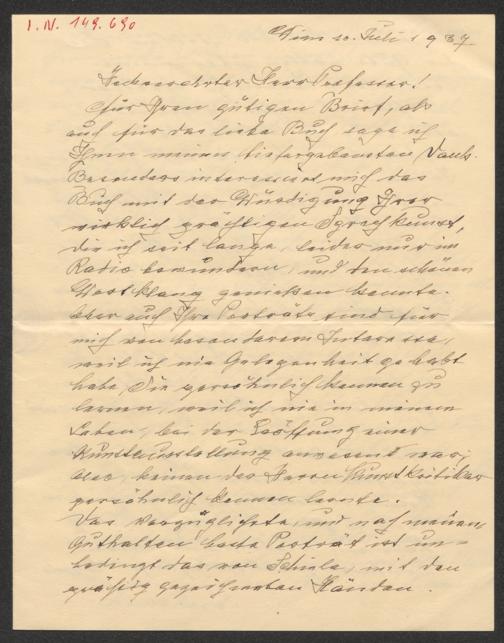 I.N. 149.690
Wien 10. Juli 1937
Hochverehrter Herr Professor!
Für Ihren gütigen Brief, als
auch für das liebe Buch sage ich
Ihnen meinen tiefergebensten Dank.
Besonders interessiert mich das
Buch mit der Würdigung Ihrer
wirklich prächtigen Sprechkunst,
die ich seit lange, leider nur im
Radio bewundern, und den schönen
Wortklang genießen konnte.
Aber auch Ihre Porträts sind für
mich von besonderem Interesse,
weil ich nie Gelegenheit gehabt
habe, Sie persöhnlich kennen zu
lernen, weil ich nie in meinem
Leben, bei der Eröffnung einer
Kunstausstellung anwesend war,
also, keinen der Herren Kunstkritiker
persöhnlich kennen lernte.
Das vorzüglichste, und nach meinem
Guthalten beste Porträt ist un-
bedingt das von Schiele, mit den
gezeichneten Händen.